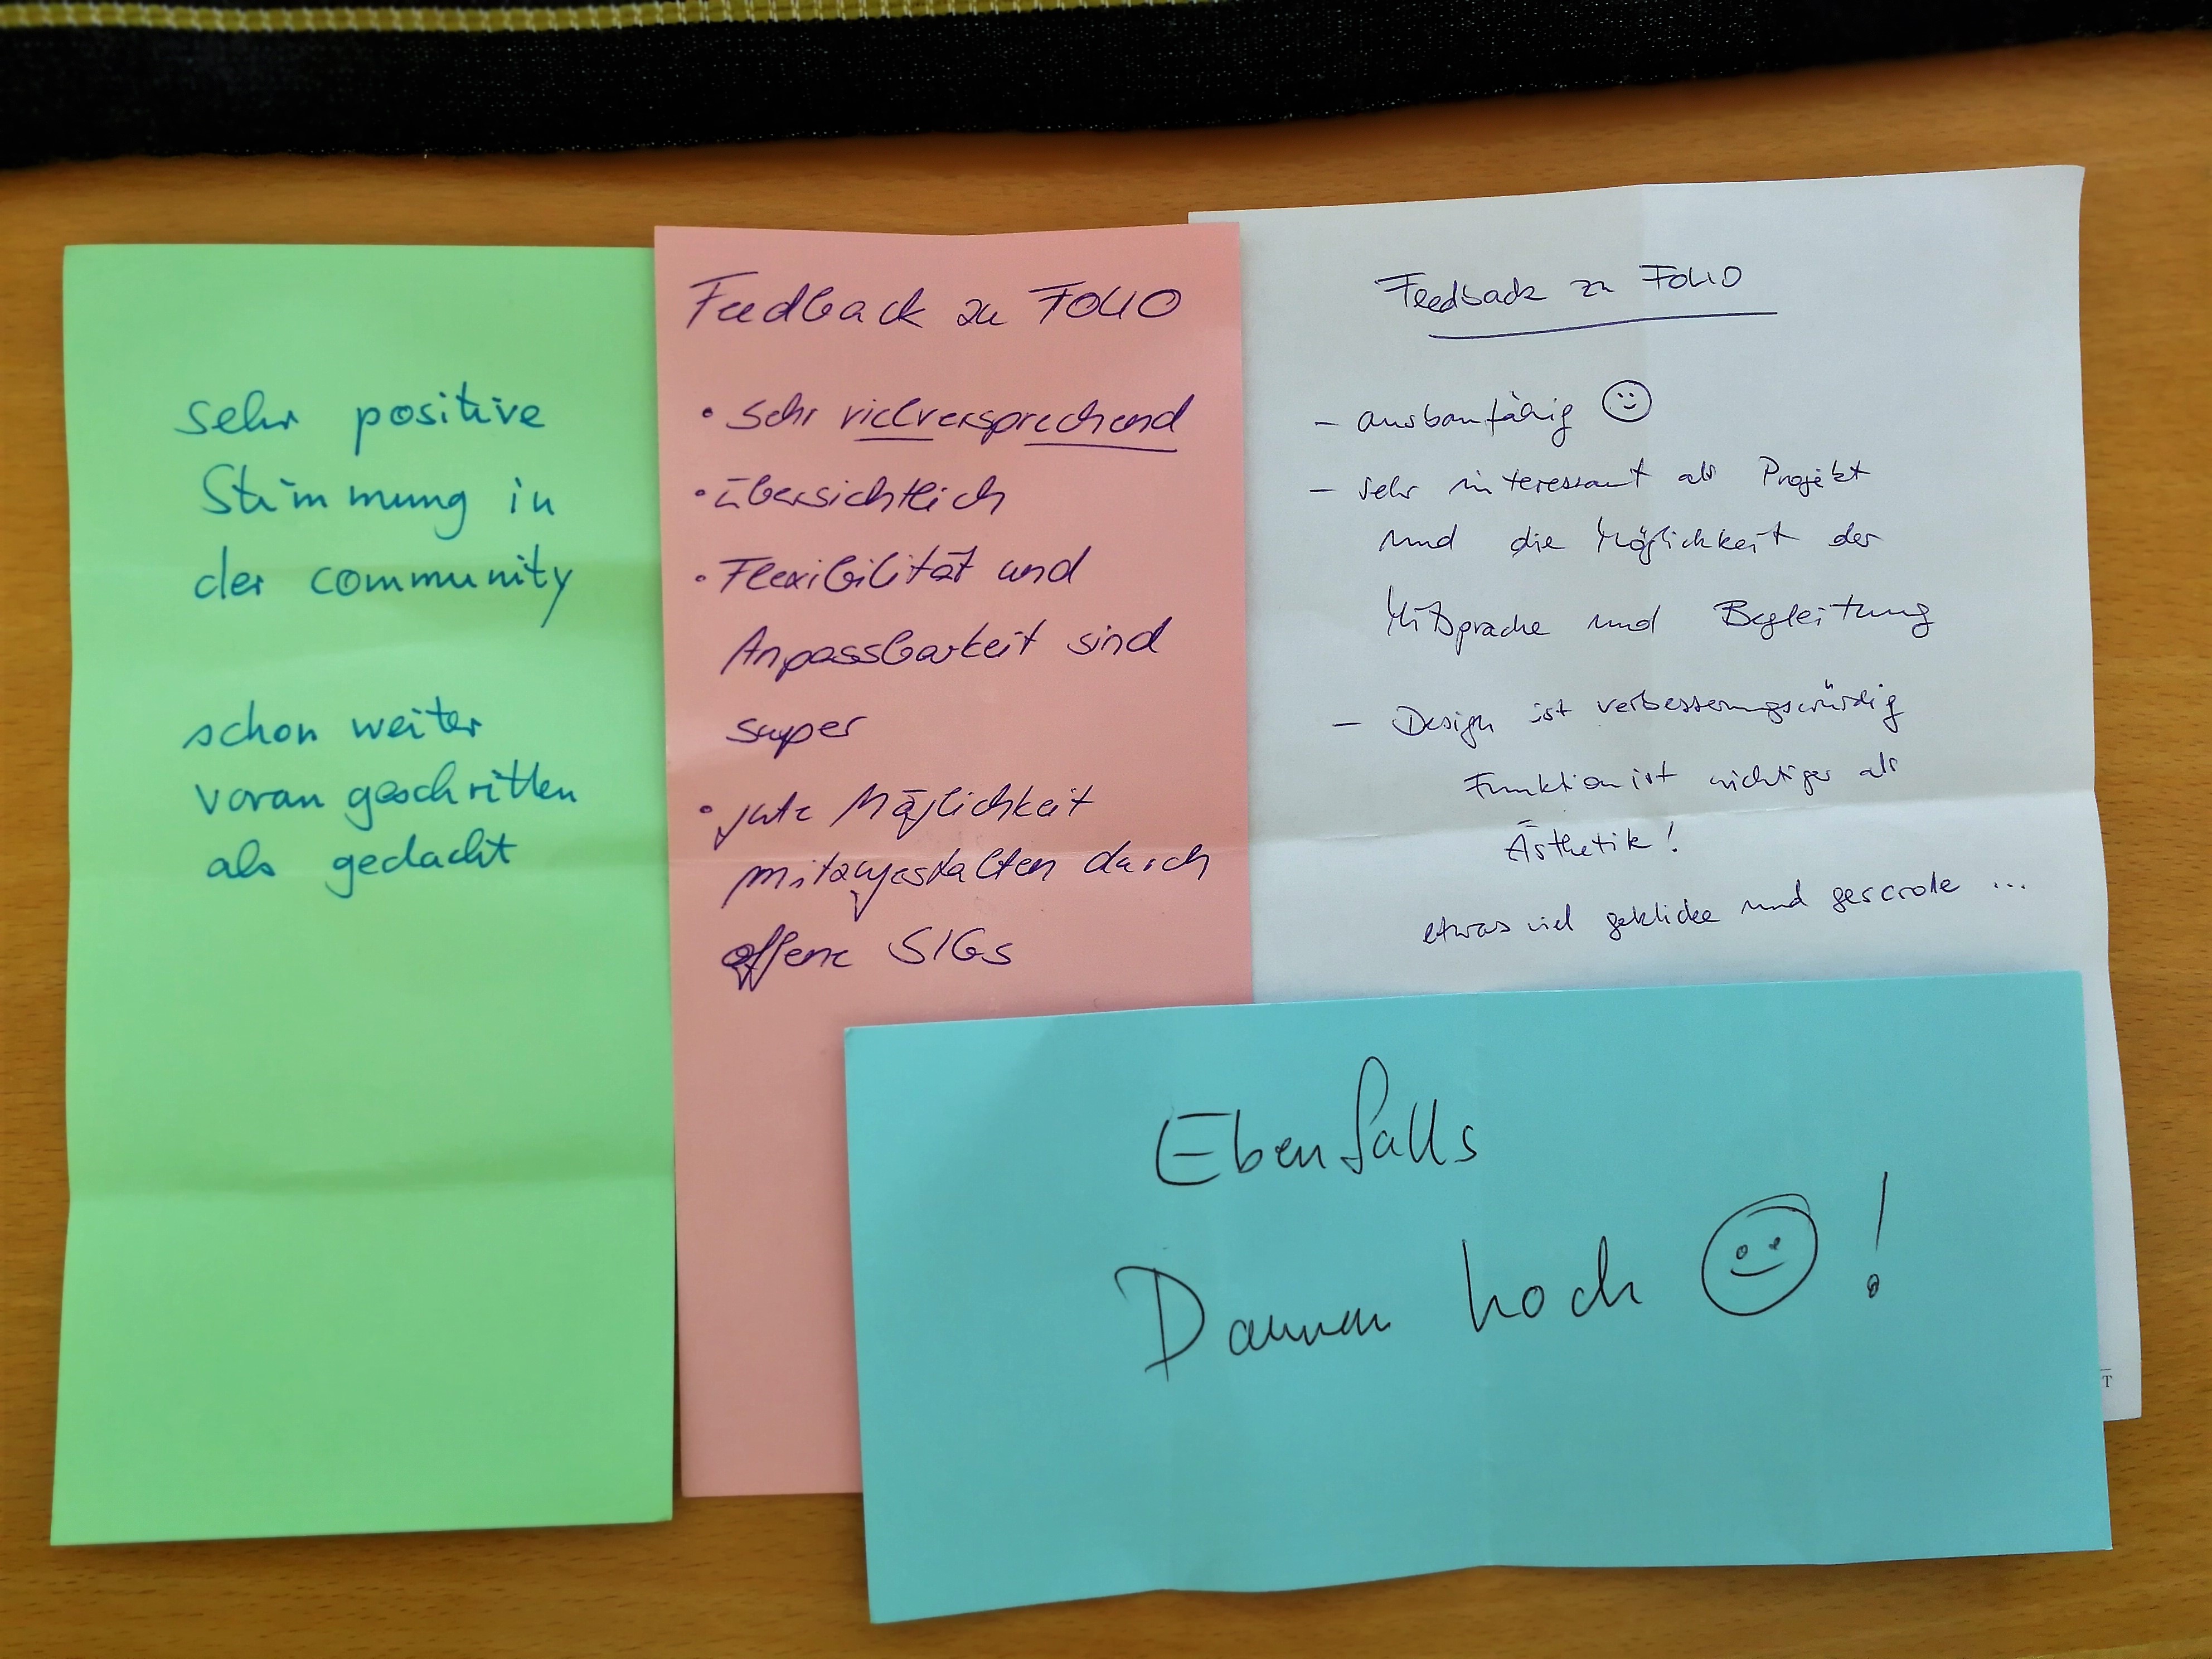 sehr positive
Stimmung in
der community
schon weiter
voran geschritten
als gedacht
Feedback zu FOLIO
• sehr vielversprechend
• übersichtlich
• Flexibilität und
Anpassbarkeit sind
super
• gute Möglichkeit
mitzugestalten durch
offene SIGs
Feedback zu FOLIO
- ausbaufähig ☺
- sehr interessant als Projekt
und die Möglichkeit der
Mitsprache und Begleitung
- Design ist verbesserungswürdig
Funktion ist wichtiger als
Ästhetik!
etwas viel geklicke und gescrolle ...
Ebenfalls
Daumen hoch ☺ !
T